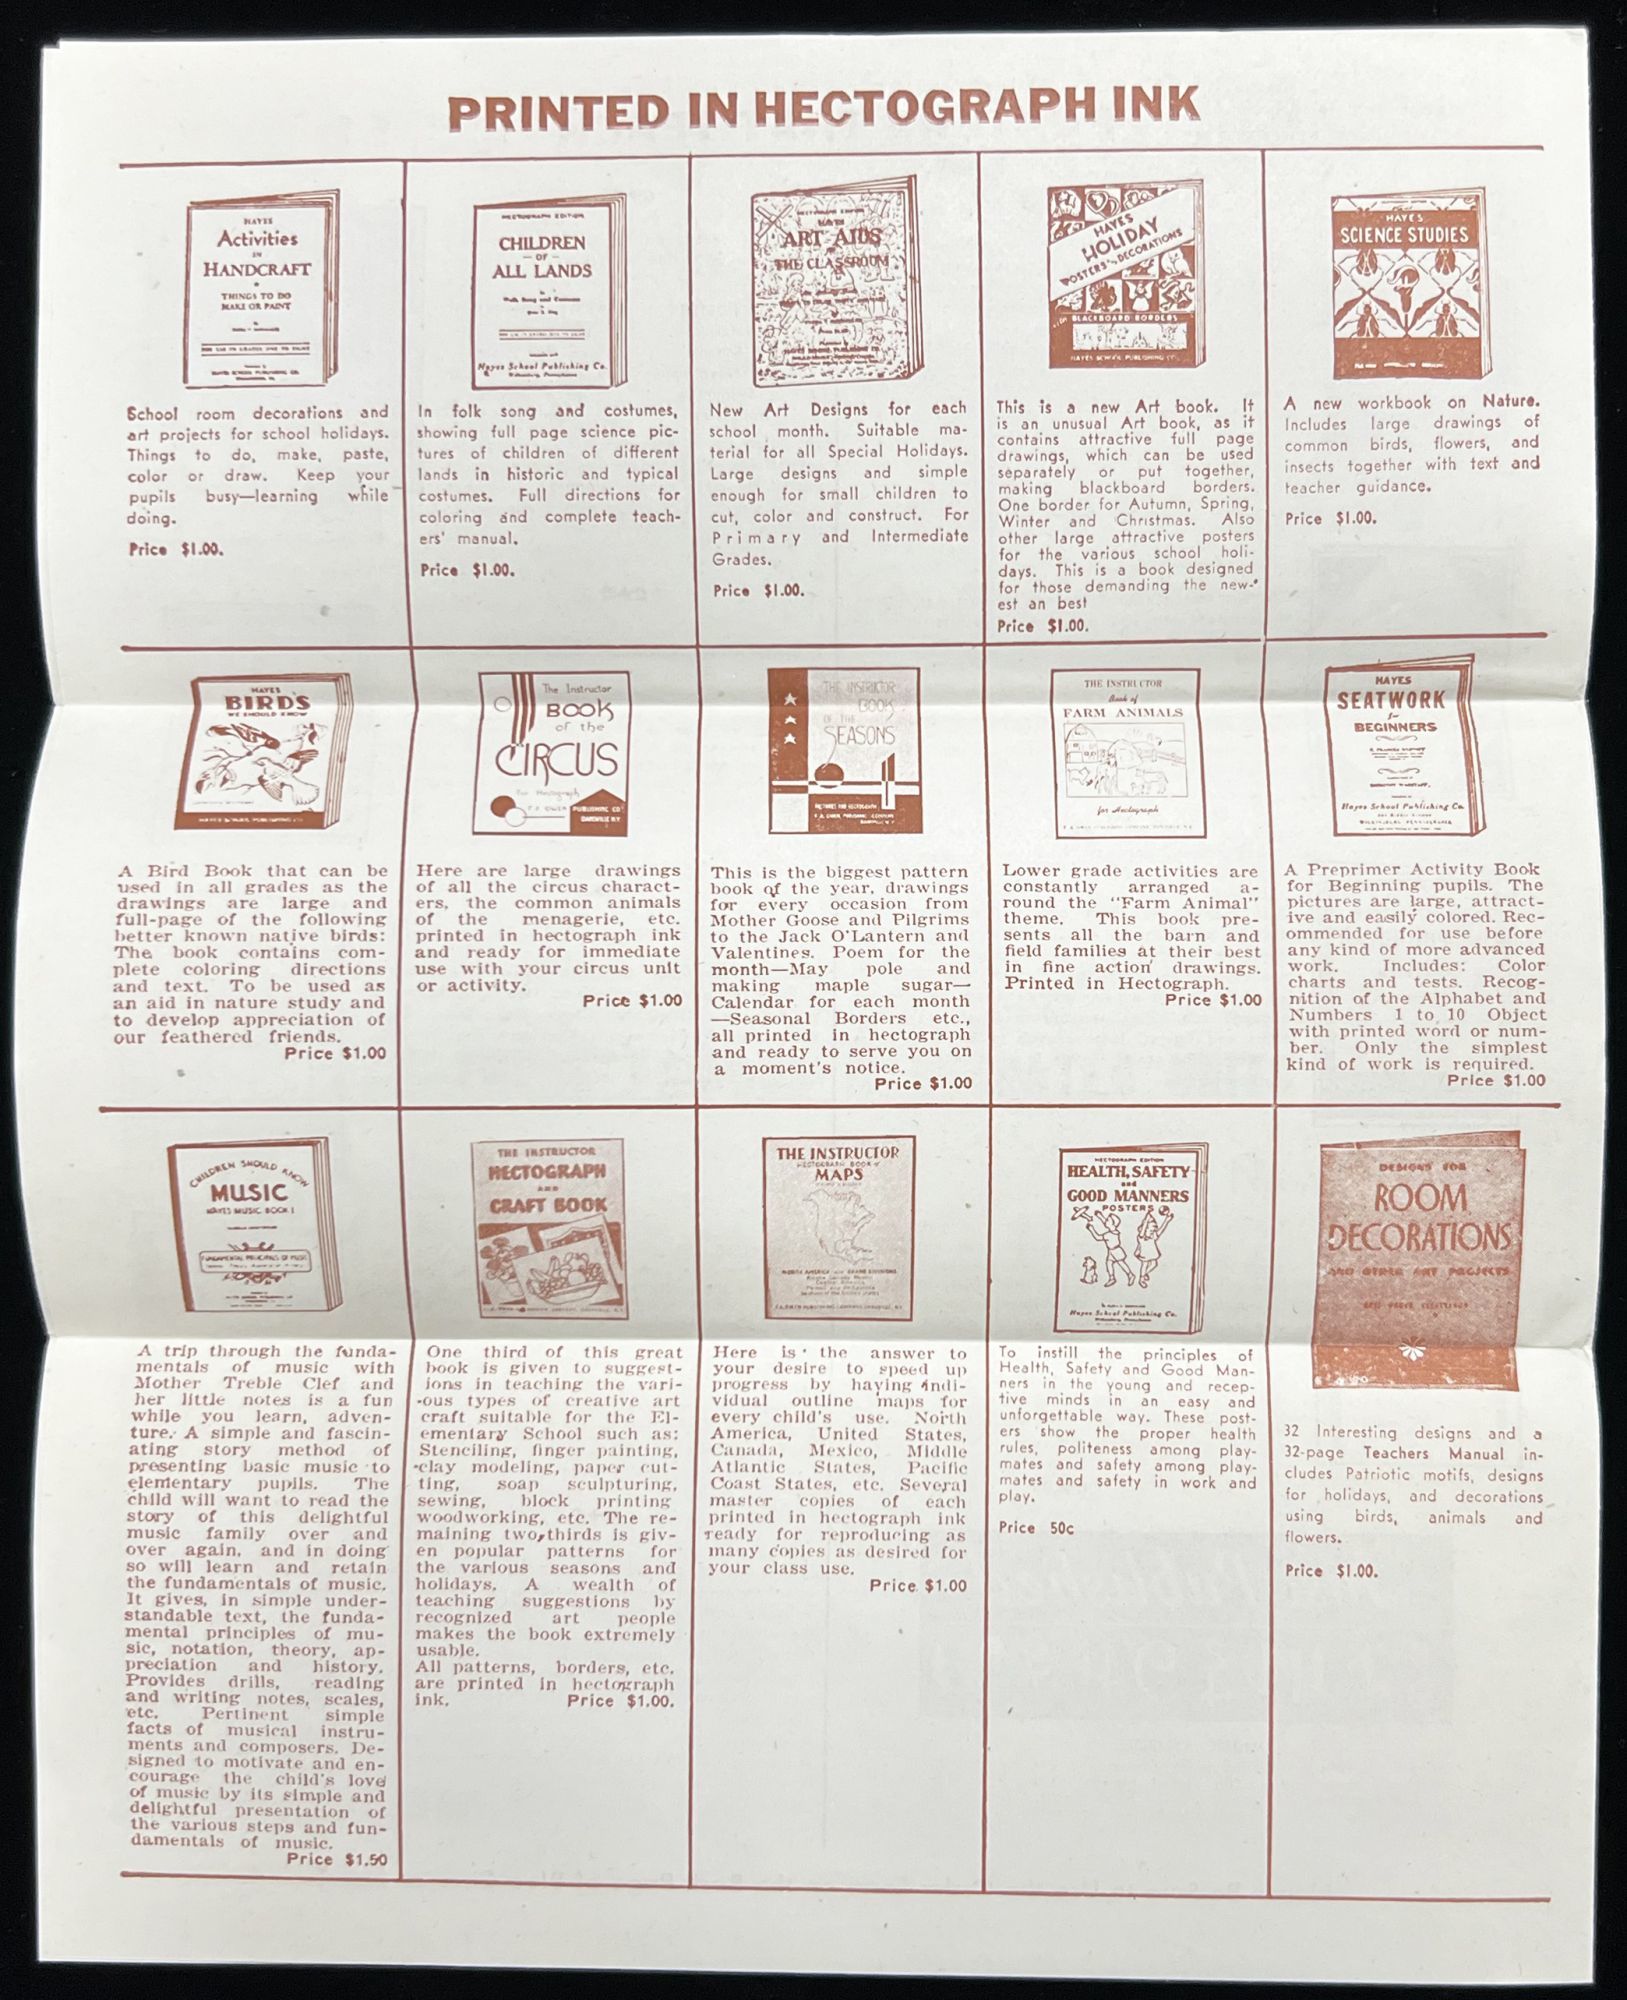 PRINTED IN HECTOGRAPH INK
HAYES
Activities
IN
HANDCRAFT
THINGS TO DO
MAKE OR PAINT
School room decorations and
art projects for school holidays.
Things to do, make, paste,
color or draw. Keep your
pupils busy—learning while
doing.
Price $1.00.
HECTOGRAPH EDITION
CHILDREN
— OF —
ALL LANDS
Hayes School Publishing Co.
Wilkinsburg, Pennsylvania
In folk song and costumes,
showing full page science pic-
tures of children of different
lands in historic and typical
costumes. Full directions for
coloring and complete teach-
ers' manual.
Price $1.00.
HECTOGRAPH EDITION
HAYES
ART AIDS
THE CLASSROOM
New Art Designs for each
school month. Suitable ma-
terial for all Special Holidays.
Large designs and simple
enough for small children to
cut, color and construct. For
Primary and Intermediate
Grades.
Price $1.00.
HAYES
HOLIDAY
POSTERS and DECORATIONS
BLACKBOARD BORDERS
HAYES SCHOOL PUBLISHING CO.
This is a new Art book. It
is an unusual Art book, as it
contains attractive full page
drawings, which can be used
separately or put together,
making blackboard borders.
One border for Autumn, Spring,
Winter and Christmas. Also
other large attractive posters
for the various school holi-
days. This is a book designed
for those demanding the new-
est an best
Price $1.00.
HAYES
SCIENCE STUDIES
A new workbook on Nature.
Includes large drawings of
common birds, flowers, and
insects together with text and
teacher guidance.
Price $1.00.
HAYES
BIRDS
WE SHOULD KNOW
HAYES SCHOOL PUBLISHING CO
A Bird Book that can be
used in all grades as the
drawings are large and
full-page of the following
better known native birds:
The book contains com-
plete coloring directions
and text. To be used as
an aid in nature study and
to develop appreciation of
our feathered friends.
Price $1.00
The Instructor
BOOK
of the
CIRCUS
For Hectograph
F. A. OWEN PUBLISHING CO
DANSVILLE N.Y.
Here are large drawings
of all the circus charact-
ers, the common animals
of the menagerie, etc.
printed in hectograph ink
and ready for immediate
use with your circus unit
or activity.
Price $1.00
THE INSTRUCTOR
BOOK
OF THE
SEASONS
PICTURES FOR HECTOGRAPH
F. A. OWEN PUBLISHING COMPANY
DANSVILLE N.Y.
This is the biggest pattern
book of the year, drawings
for every occasion from
Mother Goose and Pilgrims
to the Jack O'Lantern and
Valentines. Poem for the
month—May pole and
making maple sugar—
Calendar for each month
—Seasonal Borders etc.,
all printed in hectograph
and ready to serve you on
a moment's notice.
Price $1.00
THE INSTRUCTOR
Book of
FARM ANIMALS
for Hectograph
Lower grade activities are
constantly arranged a-
round the "Farm Animal"
theme. This book pre-
sents all the barn and
field families at their best
in fine action drawings.
Printed in Hectograph.
Price $1.00
HAYES
SEATWORK
for
BEGINNERS
Hayes School Publishing Co.
A Preprimer Activity Book
for Beginning pupils. The
pictures are large, attract-
ive and easily colored. Rec-
ommended for use before
any kind of more advanced
work. Includes: Color
charts and tests. Recog-
nition of the Alphabet and
Numbers 1 to 10 Object
with printed word or num-
ber. Only the simplest
kind of work is required.
Price $1.00
CHILDREN SHOULD KNOW
MUSIC
HAYES MUSIC BOOK I
FUNDAMENTAL PRINCIPLES OF MUSIC
A trip through the funda-
mentals of music with
Mother Treble Clef and
her little notes is a fun
while you learn, adven-
ture. A simple and fascin-
ating story method of
presenting basic music to
elementary pupils. The
child will want to read the
story of this delightful
music family over and
over again, and in doing
so will learn and retain
the fundamentals of music.
It gives, in simple under-
standable text, the funda-
mental principles of mu-
sic, notation, theory, ap-
preciation and history.
Provides drills, reading
and writing notes, scales,
etc. Pertinent simple
facts of musical instru-
ments and composers. De-
signed to motivate and en-
courage the child's love
of music by its simple and
delightful presentation of
the various steps and fun-
damentals of music.
Price $1.50
THE INSTRUCTOR
HECTOGRAPH
AND
CRAFT BOOK
One third of this great
book is given to suggest-
ions in teaching the vari-
ous types of creative art
craft suitable for the El-
ementary School such as:
Stenciling, finger painting,
clay modeling, paper cut-
ting, soap sculpturing,
sewing, block printing
woodworking, etc. The re-
maining two thirds is giv-
en popular patterns for
the various seasons and
holidays. A wealth of
teaching suggestions by
recognized art people
makes the book extremely
usable.
All patterns, borders, etc.
are printed in hectograph
ink. Price $1.00.
THE INSTRUCTOR
HECTOGRAPH BOOK of
MAPS
Here is the answer to
your desire to speed up
progress by having indi-
vidual outline maps for
every child's use. North
America, United States,
Canada, Mexico, Middle
Atlantic States, Pacific
Coast States, etc. Several
master copies of each
printed in hectograph ink
ready for reproducing as
many copies as desired for
your class use.
Price $1.00
HECTOGRAPH EDITION
HEALTH, SAFETY
and
GOOD MANNERS
POSTERS
Hayes School Publishing Co.
To instill the principles of
Health, Safety and Good Man-
ners in the young and recep-
tive minds in an easy and
unforgettable way. These post-
ers show the proper health
rules, politeness among play-
mates and safety among play-
mates and safety in work and
play.
Price 50c
DESIGNS FOR
ROOM
DECORATIONS
AND OTHER ART PROJECTS
32 Interesting designs and a
32-page Teachers Manual in-
cludes Patriotic motifs, designs
for holidays, and decorations
using birds, animals and
flowers.
Price $1.00.